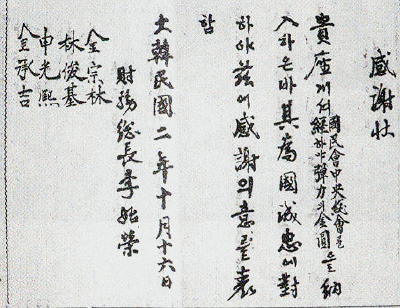 感謝狀
貴座게서國民會中央総會로經하야力의金圓을納
入하온바其爲國誠忠에對
하야玆에感謝의意를表
함
大韓民國二年十月十六日
財務総長李始榮
金宗林
林俊基
申光熙
金承吉